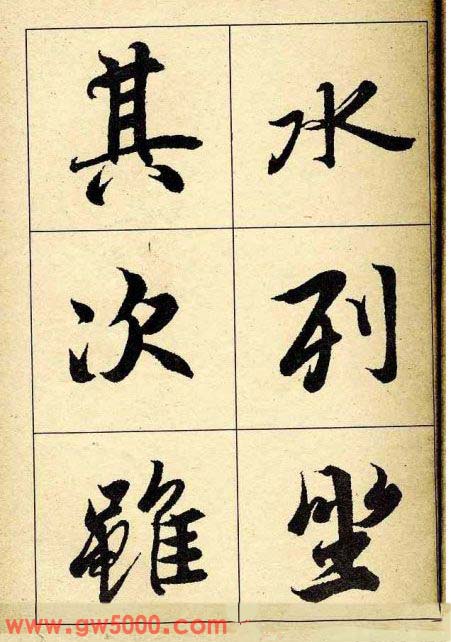 水列坐
其次雖
www.gw5000.com